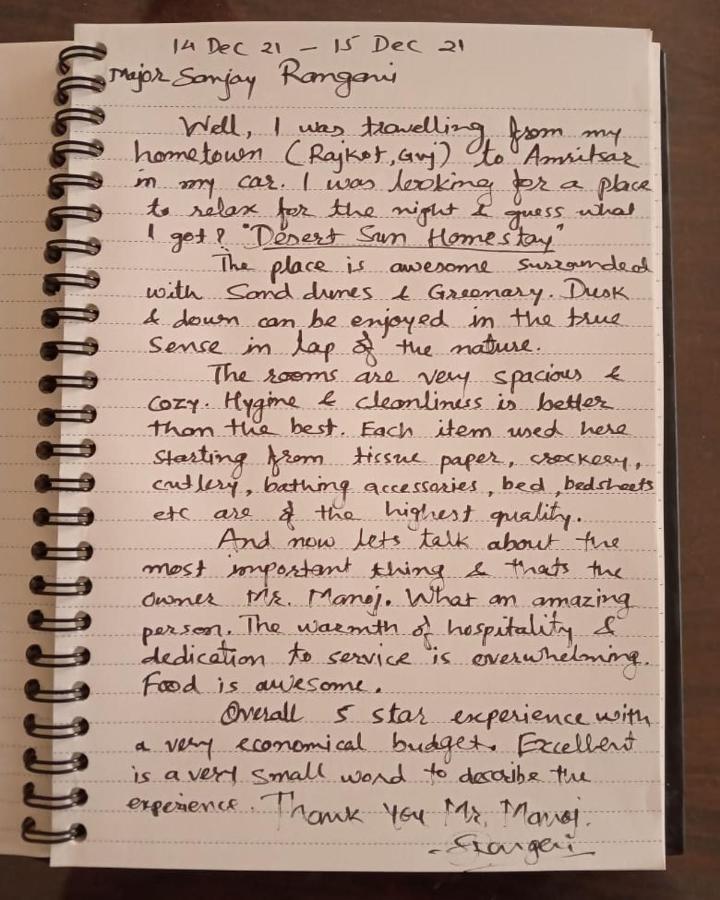 14 Dec 21 - 15 Dec 21
Major Sanjay Rangani
Well, I was travelling from my
hometown (Rajkot, Guj) to Amritsar
in my car. I was looking for a place
to relax for the night & guess what
I got? "Desert Sun Homestay"
The place is awesome surrounded
with Sand dunes & Greenary. Dusk
& down can be enjoyed in the true
sense in lap of the nature.
The rooms are very spacious &
cozy. Hygine & cleanliness is better
than the best. Each item used here
starting from tissue paper, crockery,
cutlery, bathing accessories, bed, bedsheets
etc are of the highest quality.
And now lets talk about the
most important thing & thats the
owner Mr. Manoj. What an amazing
person. The warmth of hospitality &
dedication to service is overwhelming.
Food is awesome.
Overall 5 star experience with
a very economical budget. Excellent
is a very small word to describe the
experience. Thank you Mr. Manoj.